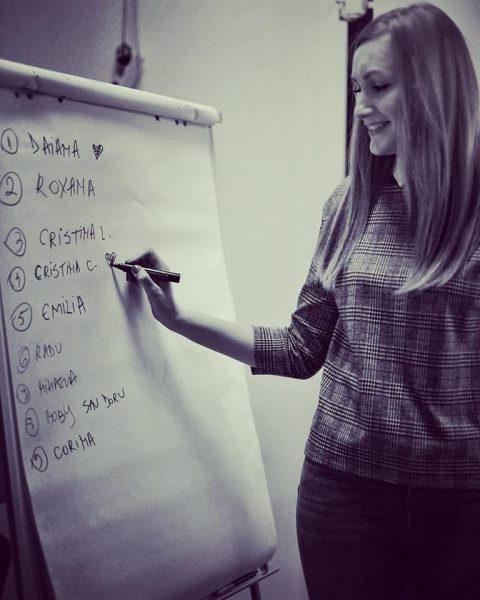 1 DAIANA ♥
2 ROXANA
3 CRISTINA L.
4 CRISTINA C. ♡
5 EMILIA
6 RADU
MIHAELA
BOBY SAU DORU
CORINA